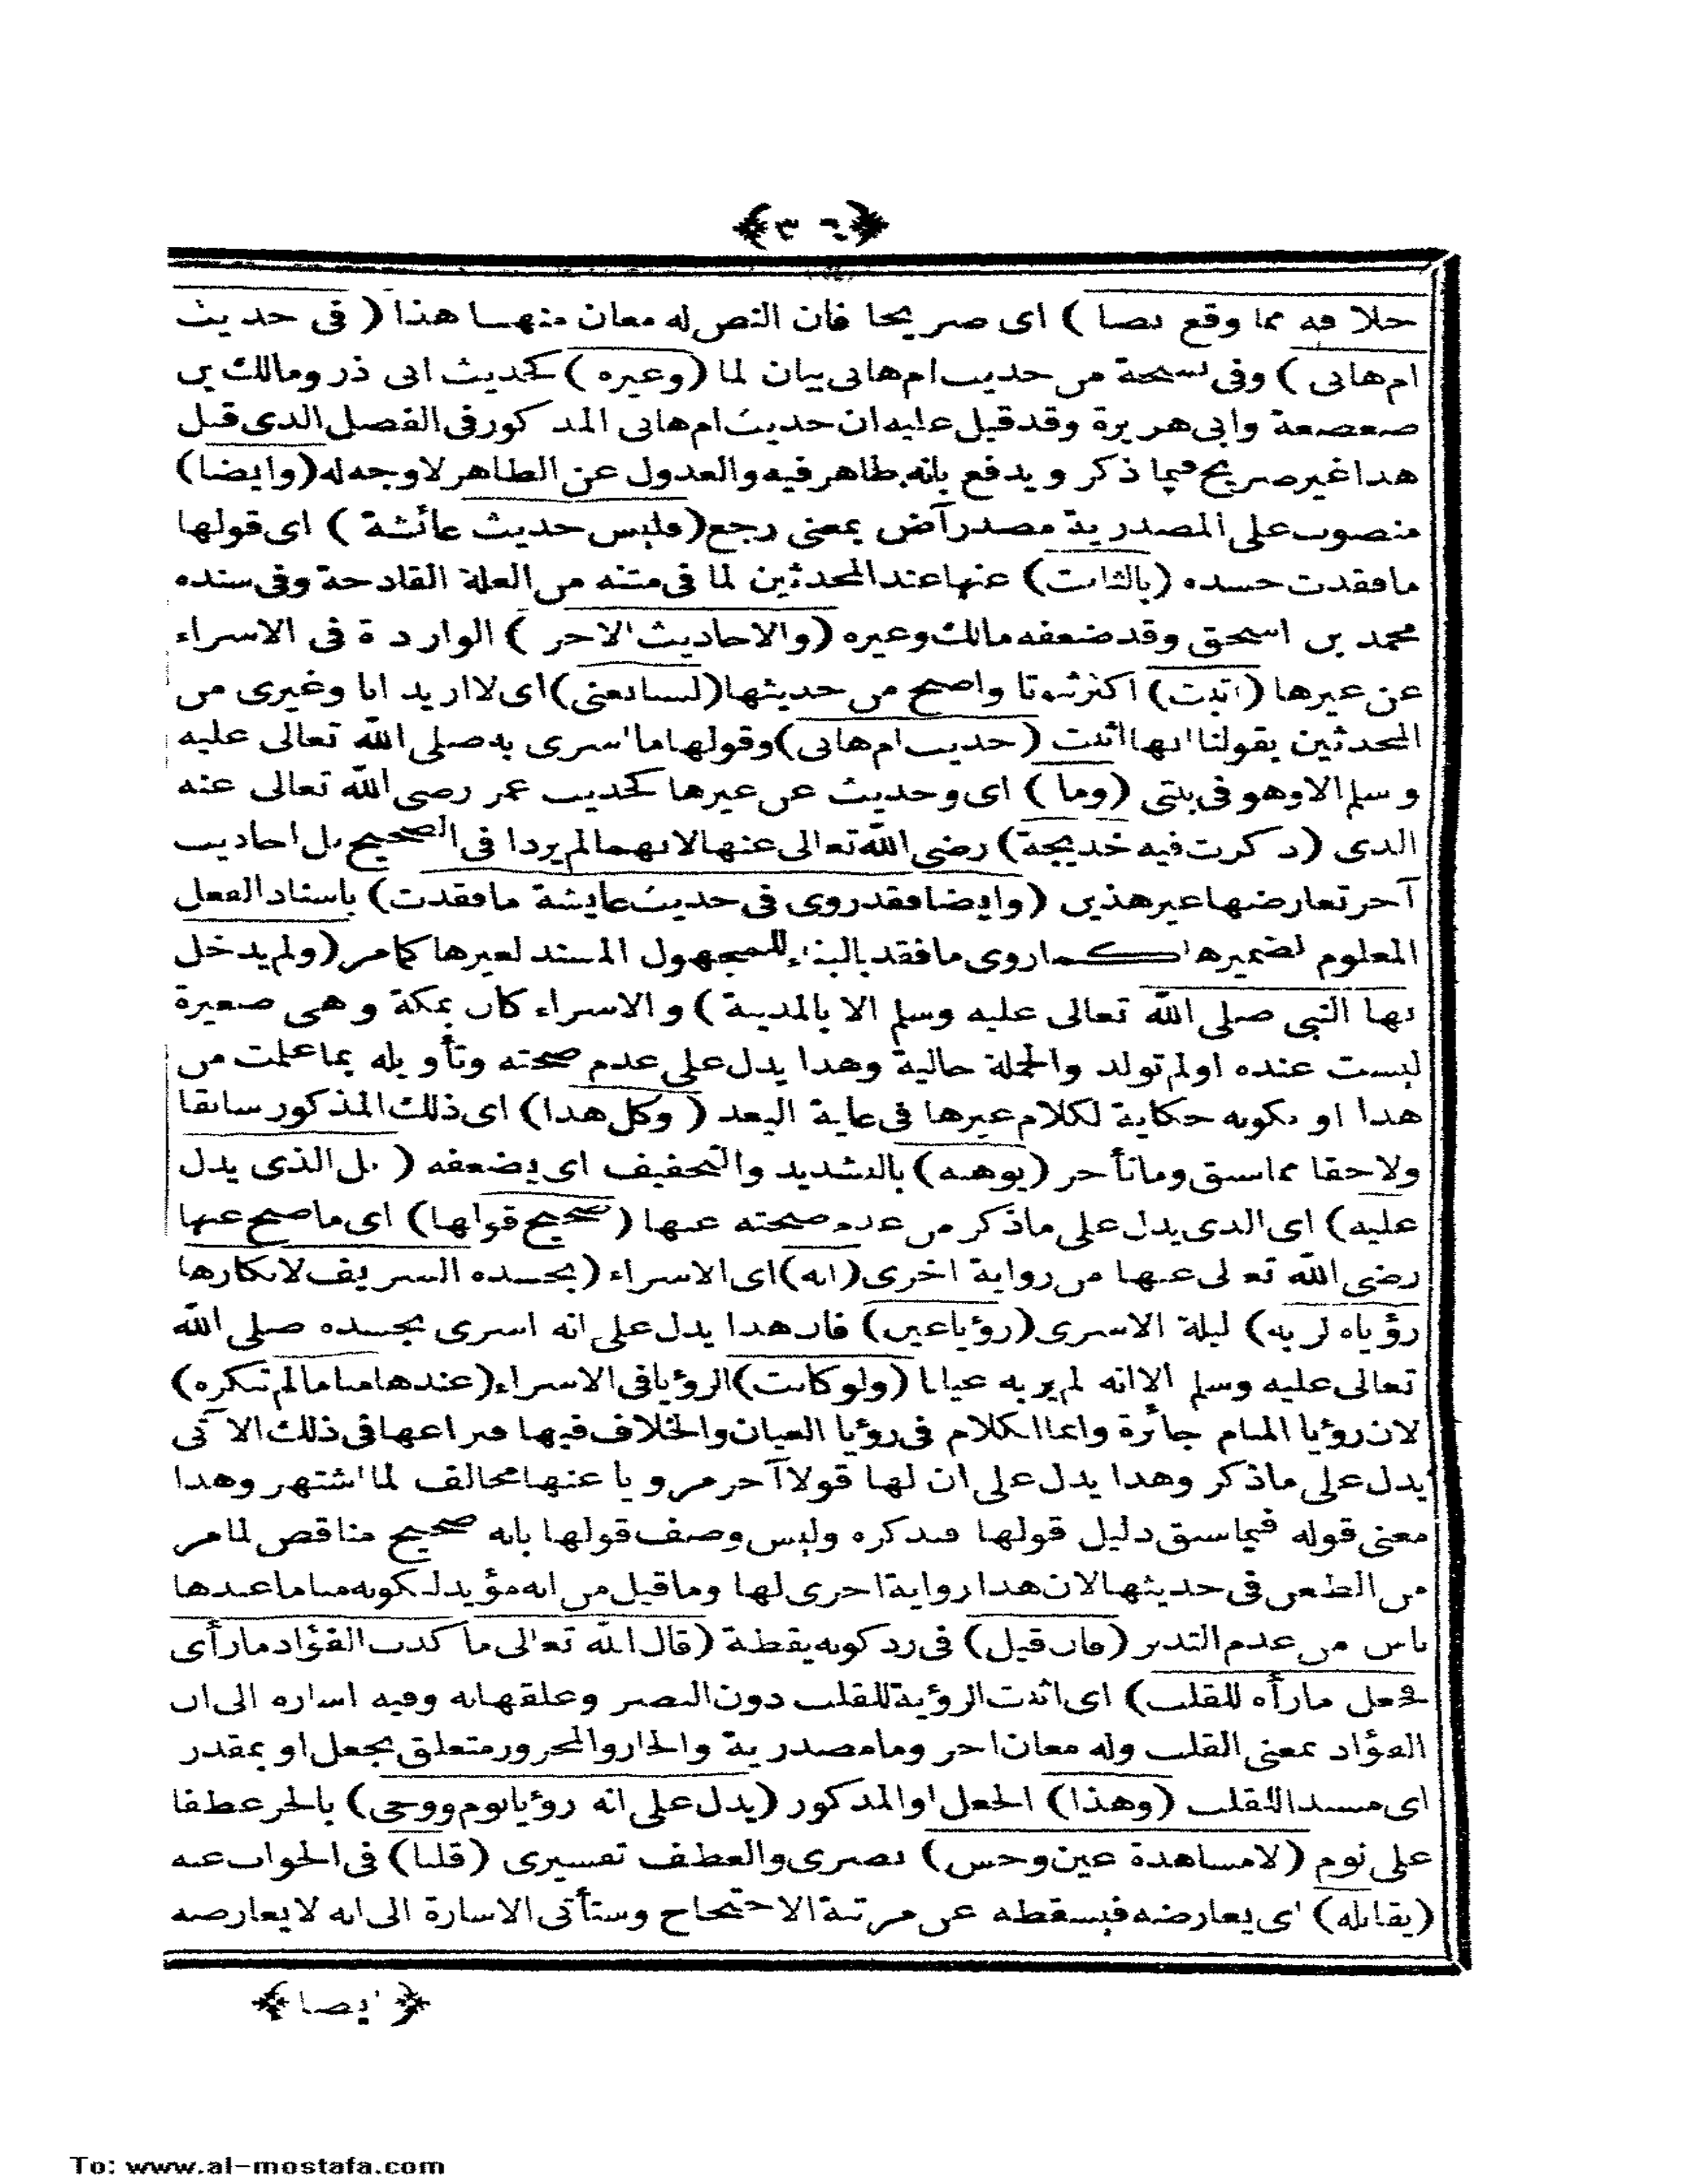 ﴿ ٣٦ ﴾
خلافه مما وقع نصا ) اى صريحا فان النص له معان منها هذا ( فى حديث
ام هانى ) وفى نسخة من حديث ام هانى بيان لما ( وغيره ) كحديث ابى ذر ومالك بن
صعصعة وابى هريرة وقد قيل عليه ان حديث ام هانى المذكور فى الفصل الذى قبل
هذا غير صريح فيما ذكر ويدفع بانه ظاهر فيه والعدول عن الظاهر لا وجه له ( وايضا )
منصوب على المصدرية مصدر آض بمعنى رجع ( فليس حديث عائشة ) اى قولها
ما فقدت جسده ( بالثابت ) عنها عند المحدثين لما فى متنه من العلة القادحة وفى سنده
محمد بن اسحق وقد ضعفه مالك وغيره ( والاحاديث الاخر ) الواردة فى الاسراء
عن غيرها ( اثبت ) اكثر ثبوتا واصح من حديثها ( لسنا نعنى ) اى لا اريد انا وغيرى من
المحدثين بقولنا انها اثبت ( حديث ام هانى ) وقولها ما اسرى به صلى الله تعالى عليه
وسلم الا وهو فى بيتى ( وما ) اى وحديث عن غيرها كحديث عمر رضى الله تعالى عنه
الذى ( ذكرت فيه خديجة ) رضى الله تعالى عنها لانهما لم يردا فى الصحيح بل احاديث
آخر تعارضها غير هذين ( وايضا فقد روى فى حديث عايشة ما فقدت ) باسناد الفعل
المعلوم لضميرها كما روى ما فقد بالبناء للمجهول المسند لغيرها كما مر ( ولم يدخل
بها النبى صلى الله تعالى عليه وسلم الا بالمدينة ) والاسراء كان بمكة وهى صغيرة
ليست عنده اولم تولد والجملة حالية وهذا يدل على عدم صحته وتأويله بما علمت من
هذا او بكونه حكاية لكلام غيرها فى غاية البعد ( وكل هذا ) اى ذلك المذكور سابقا
ولاحقا مما سبق وما تأخر ( يوهنه ) بالتشديد والتخفيف اى يضعفه ( بل الذى يدل
عليه ) اى الذى يدل على ما ذكر من عدم صحته عنها ( صحيح قولها ) اى ما صح عنها
رضى الله تعالى عنها من رواية اخرى ( انه ) اى الاسراء ( بجسده الشريف لانكارها
رؤياه لربه ) ليلة الاسرى ( رؤيا عين ) فان هذا يدل على انه اسرى بجسده صلى الله
تعالى عليه وسلم الا انه لم ير به عيانا ( ولو كانت ) الرؤيا فى الاسراء ( عندها مناما لم تنكره )
لان رؤيا المنام جائزة وانما الكلام فى رؤيا العيان والخلاف فيها فنزاعها فى ذلك الآتى
يدل على ما ذكر وهذا يدل على ان لها قولا آخر مرويا عنها مخالف لما اشتهر وهذا
معنى قوله فيما سبق دليل قولها فتذكره وليس وصف قولها بانه صحيح مناقض لما مر
من الطعن فى حديثها لان هذا رواية اخرى لها وما قيل من انه مؤيد لكونه مناما عندها
ناس من عدم التدبر ( فان قيل ) فى رد كونه يقظة ( قال الله تعالى ما كذب الفؤاد ما رأى
فجعل ما رأه للقلب ) اى اثبت الرؤية للقلب دون البصر وعلقها به وفيه اشارة الى ان
الفؤاد بمعنى القلب وله معان اخر وما مصدرية والجار والمجرور متعلق بجعل او بمقدر
اى مسندا للقلب ( وهذا ) الجعل او المذكور ( يدل على انه رؤيا نوم ووحى ) بالجر عطفا
على نوم ( لا مشاهدة عين وحس ) بصرى والعطف تفسيرى ( قلنا ) فى الجواب عنه
( يقابله ) اى يعارضه فيسقطه عن مرتبة الاحتجاج وستأتى الاشارة الى انه لا يعارضه
﴿ ايضا ﴾
To: www.al-mostafa.com